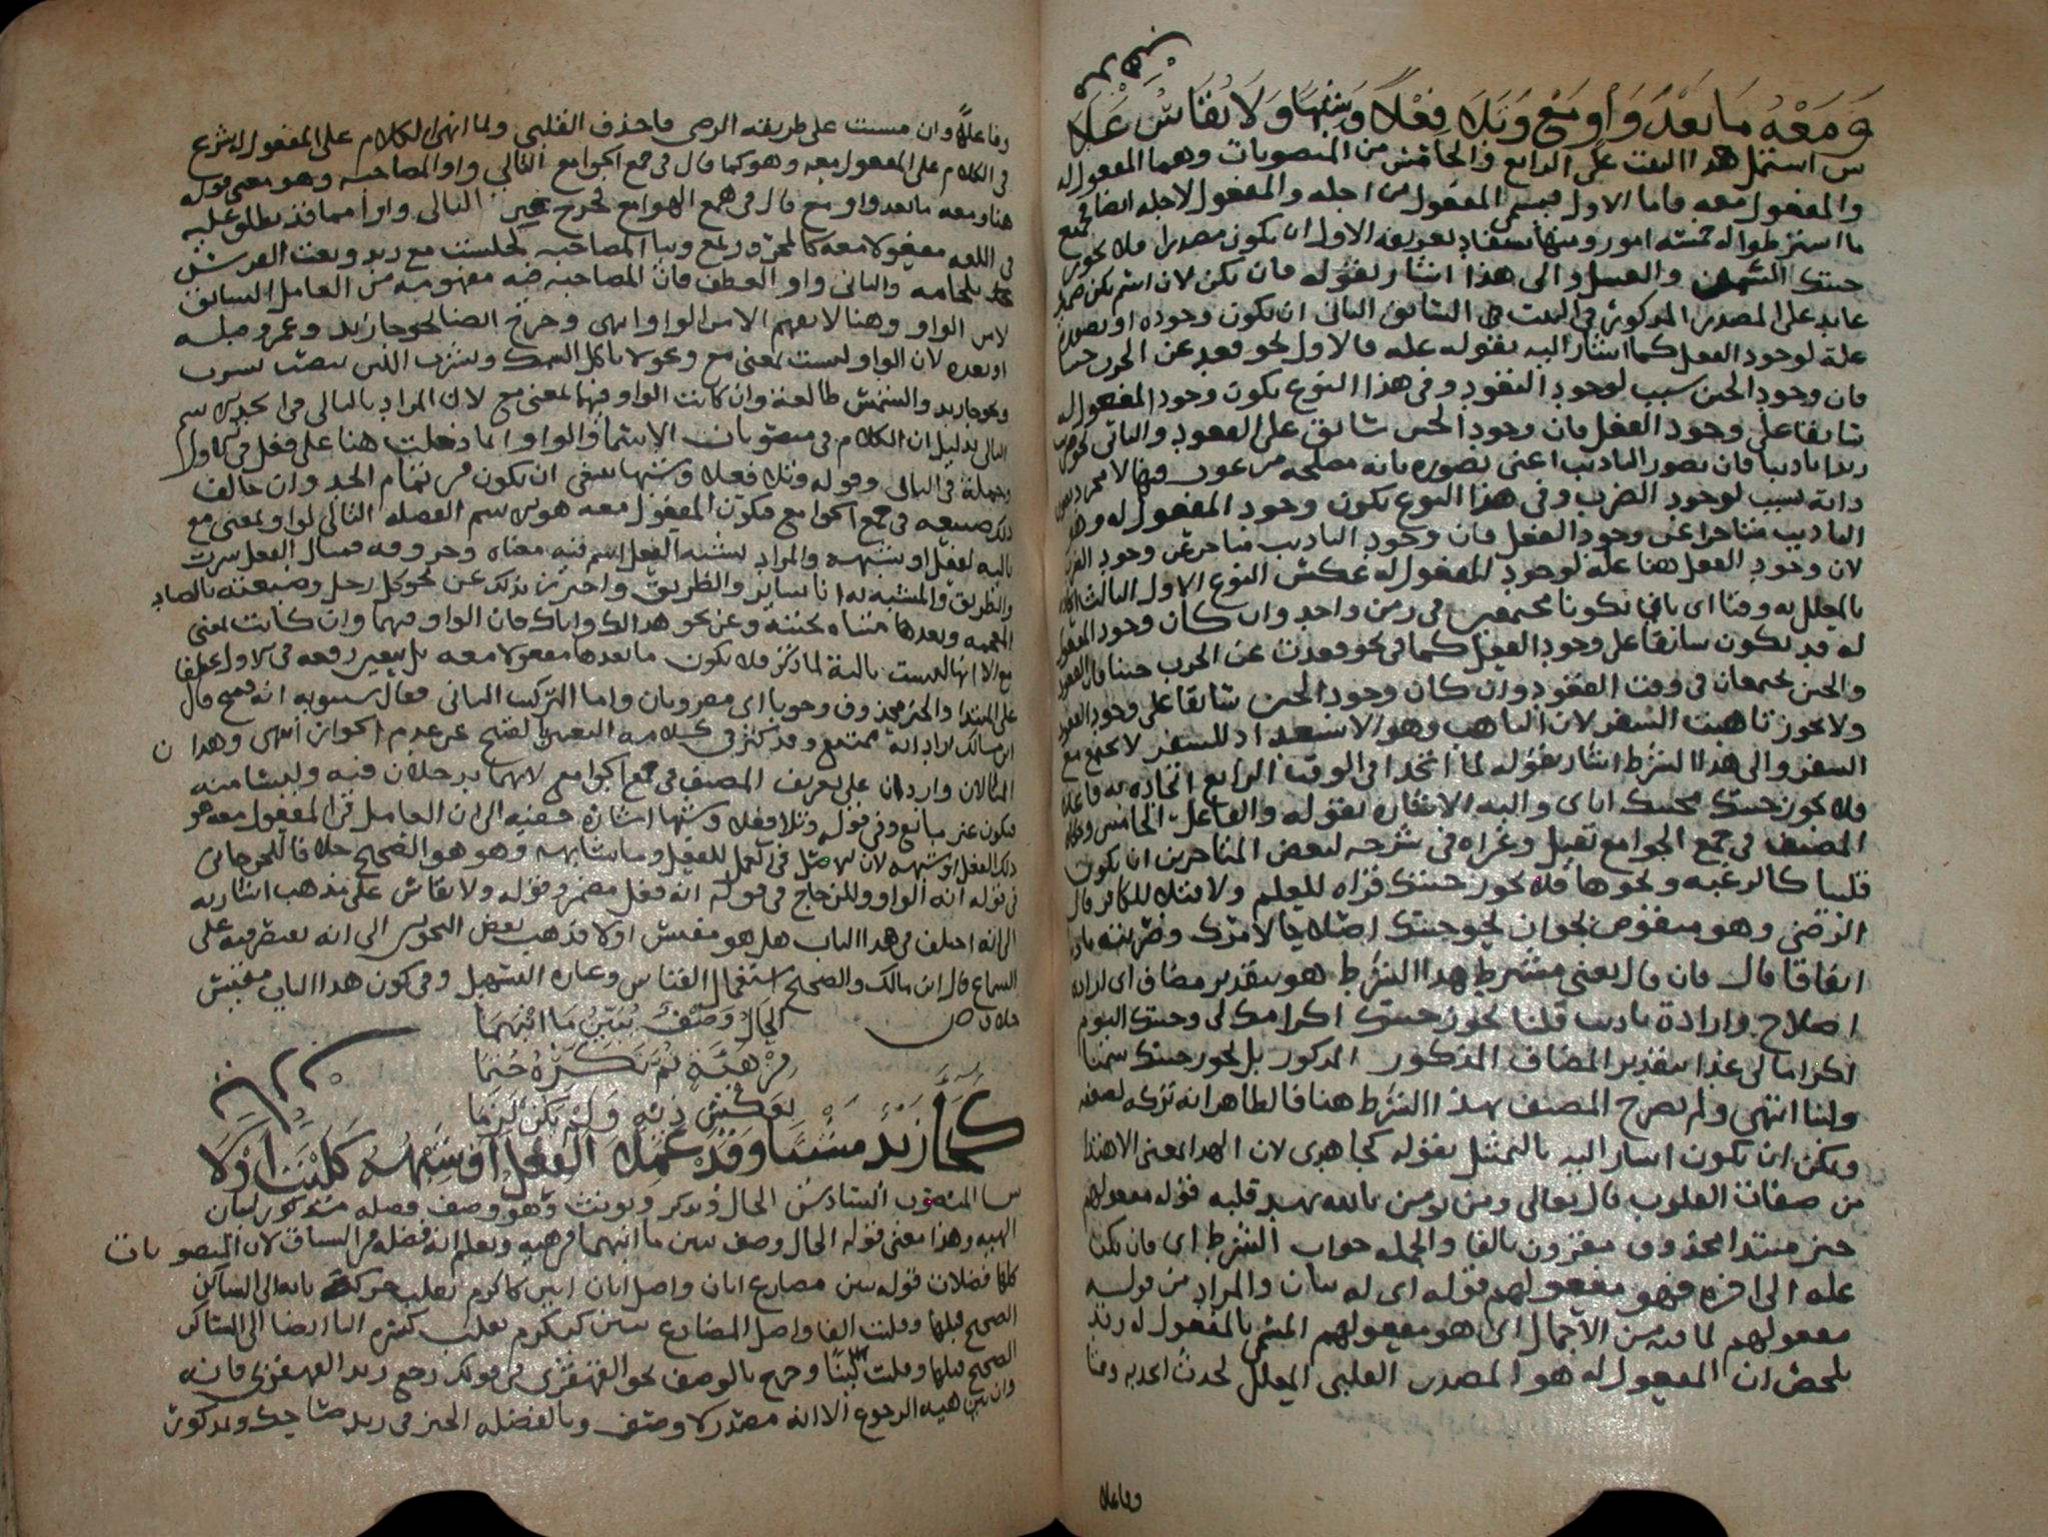 وَمَعْهُ مَا بَعْدَ وَاوِ مَعْ وَتَلَا فِعْلًا وَشِبْهًا وَلَا يُقَاسُ عَلَا
س اشتمل هذا البيت على الرابع والخامس من المنصوبات وهما المفعول له
والمفعول معه فاما الاول فيسمى المفعول من اجله والمفعول لاجله ايضا فجميع
ما اشترطوا له خمسة امور ومنها يستفاد تعريفه الاول ان يكون مصدرا فلا يجوز
جيتك السمن والعسل والى هذا اشار بقوله فان يكن لان اسم يكن ضمير
عايد على المصدر المذكور في البيت السابق الثاني ان يكون وجوده او تصوره
علة لوجود الفعل كما اشار اليه بقوله عله فالاول نحو قعد عن الحرب جبنا
فان وجود الجبن سبب لوجود القعود وفي هذا النوع يكون وجود المفعول له
سابقا على وجود الفعل فان وجود الجبن سابق على القعود والثاني نحو ضرب
زيدا تاديبا فان تصور التاديب اعني تصوره بانه مصلحة مرغوب فيها لا مجرد
ذاته سبب لوجود الضرب وفي هذا النوع يكون وجود المفعول له وهو
التاديب متاخرا عن وجود الفعل فان وجود التاديب متاخر عن وجود الضرب
لان وجود الفعل هنا علة لوجود المفعول له عكس النوع الاول الثالث
بالمعلل به وقتا اي بان يكونا مجتمعين في زمن واحد وان كان وجود المفعول
له قد يكون سابقا على وجود الفعل كما في نحو قعدت عن الحرب جبنا فان القعود
والجبن يجتمعان في وقت القعود وان كان وجود الجبن سابقا على وجود القعود
ولا يجوز تاهبت السفر لان التاهب وهو الاستعداد للسفر لا يجتمع مع
السفر والى هذا الشرط اشار بقوله لما اتحدا في الوقت الرابع اتحاده به فاعلا
فلا يجوز جيتك محبتك اياي واليه الاشارة بقوله والفاعل الخامس
المصنف في جمع الجوامع بقيل وعزاه في شرحه لبعض المتاخرين ان يكون
قلبيا كالرغبة ونحوها فلا يجوز جيتك قراة للعلم ولا قتلا للكافر قال
الرضي وهو منقوض بجواز نحو جيتك اصلاحا لامرك وضربته تاديبا
اتفاقا قال فان قال يعني مشترط هذا الشرط هو بتقدير مضاف اي ارادة
اصلاح وارادة تاديب قلنا نجوز جيتك اكرامك لي وجيتك اليوم
اكراما لي غدا بتقدير المضاف المذكور بل نجوز جيتك سمنا
ولبنا انتهى ولم يصرح المصنف بهذا الشرط هنا فالظاهر انه تركه لضعفه
ويمكن ان يكون اشار اليه بالتمثيل بقوله كجا هدى لان الهدى بمعنى الاهتدا
من صفات القلوب قال تعالى ومن يومن بالله يهد قلبه قوله مفعولهم
خبر مبتدا محذوف مقرون بالفا والجملة جواب الشرط اي فان يكن
علة الى اخره فهو مفعولهم قوله اي له بيان والمراد من قوله
مفعولهم لما فيه من الاجمال اي هو مفعولهم المسمى بالمفعول له وقد
تلخص ان المفعول له هو المصدر القلبي المعلل لحدث اتحد به وقتا
وفاعلا
وفاعلا وان مشيت على طريقة الرضي فاحذف القلبي ولما انهى الكلام على المفعول له شرع
في الكلام على المفعول معه وهو كما قال في جمع الجوامع التالي واو المصاحبة وهو معنى قوله
هنا ومعه ما بعد واو مع قال في همع الهوامع فخرج غير التالي واوا مما قد يطلق عليه
في اللغة مفعولا معه كالمجرور بمع وببا المصاحبة كجلست مع زيد وبعت الفرس
بلجامه والثاني واو العطف فان المصاحبة فيه مفهومة من العامل السابق
لا من الواو وهنا لا يفهم الا من الواو انتهى وخرج ايضا نحو جا زيد وعمرو قبله
او بعده لان الواو ليست بمعنى مع ونحو لا تاكل السمك وتشرب اللبن بنصب تشرب
ونحو جا زيد والشمس طالعة وان كانت الواو فيهما بمعنى مع لان المراد بالتالي في الحد الاسم
التالي بدليل ان الكلام في منصوبات الاسما والواو انما دخلت هنا على فعل في الاول
وجملة في الثاني وقوله وتلا فعلا وشبها ينبغي ان يكون من تمام الحد وان خالف
ذلك صنيعه في جمع الجوامع فيكون المفعول معه هو الاسم الفضلة التالي لواو بمعنى مع
تاليه لفعل او شبهه والمراد بشبه الفعل اسم فيه معناه وحروفه فمثال الفعل سرت
والطريق والمشبه له انا ساير والطريق واحترز بذلك عن نحو كل رجل وضيعته بالضاد
المعجمة وبعدها مثناة تحتية وعن نحو هذا لك واباك فان الواو فيهما وان كانت بمعنى
مع الا انها ليست تالية لما ذكر فلا يكون ما بعدها مفعولا معه بل يتعين رفعه في الاول عطفا
على المبتدا والخبر محذوف وجوبا اي مقرونان واما التركيب الثاني فقال سيبويه انه قبيح قال
ابن مالك اراد انه ممتنع وقد كثر في كلامه التعبير بالقبيح عن عدم الجواز انتهى وهذا ن
المثالان واردان على تعريف المصنف في جمع الجوامع لانهما يدخلان فيه وليسا منه
فيكون غير مانع وفي قوله وتلا فعلا وشبها اشارة خفية الى ان العامل في المفعول معه هو
ذلك الفعل او شبهه لان الاصل في العمل للفعل وما شابهه وهو هو الصحيح خلافا للجرجاني
في قوله انه الواو وللزجاج في قوله انه فعل مضمر وقوله ولا يقاس على مذهب اشار به
الى انه اختلف في هذا الباب هل هو مقيس اولا فذهب بعض النحويين الى انه يقتصر فيه على
السماع قال ابن مالك والصحيح استعمال القياس وعبارة التسهيل وفي كون هذا الباب مقيس
خلاف ص
الحَالُ وَصْفٌ يُبَيِّنُ مَا انْبَهَمَا
مِنْ هَيْئَةٍ ثُمَّ نَكِّرْهُ حُتِمَا
بِعَكْسِ ذِيهِ وَلَمْ يَكُنْ لَزِمَا
كَجَا زَيْدٌ مَشْيًا وَقَدْ عَمِلَ الفِعْلُ اَوْ شِبْهُهُ كَلَيْتَ اَوَّلَا
س المنصوب السادس الحال ويذكر ويونث وهو وصف فضلة مذكور لبيان
الهيه وهذا معنى قوله الحال وصف يبين ما انبهم من هيه ويعلم انه فضلة من السياق لان المنصوبات
كلها فضلات قوله يبين مضارع ابان واصل ابان ابين كاكرم نقلت حركة يايه الى الساكن
الصحيح قبلها وقلبت الفا واصل المضارع يبين كيكرم نقلت كسرة اليا ايضا الى الساكن
الصحيح قبلها وقلبت وخرج بالوصف نحو القهقرى من قولك رجع زيد القهقرى فانه
وان بين هيه الرجوع الا انه مصدر لا وصف وبالفضلة الخبر في زيد ضاحك وبمذكور